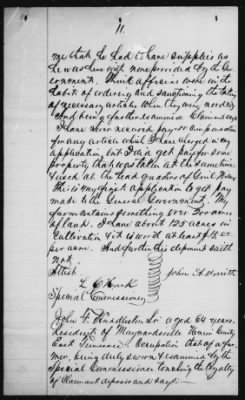 11
me that he had to have supplies as
he was here with none provided by the Gov
ernment. Think officers were in the
habit of ordering and sanctioning the taking
of necessary articles when they were needed.
And being further examined Claimant says
I have never received pay or compensation
for any article which I have charged in my
application but I did get pay for some
property that was taken at the same time
& used at the head quarters of Genl
This is my first application to get pay
made to the General Government. My
farm contains something over 200 acres
of land. I have about 125 acres in
Cultivation & it is worth at least $15
per acre. And further this deponent saith
not.
Attest.
John A
Special Commissioner
John F. Huddleston Sr. aged 64 years.
Resident of Maynardville Union County
East Tennessee. Occupation that of a far
mer, being duly sworn & examined by the
Special Commissioner touching the loyalty
of Claimant deposes and says.